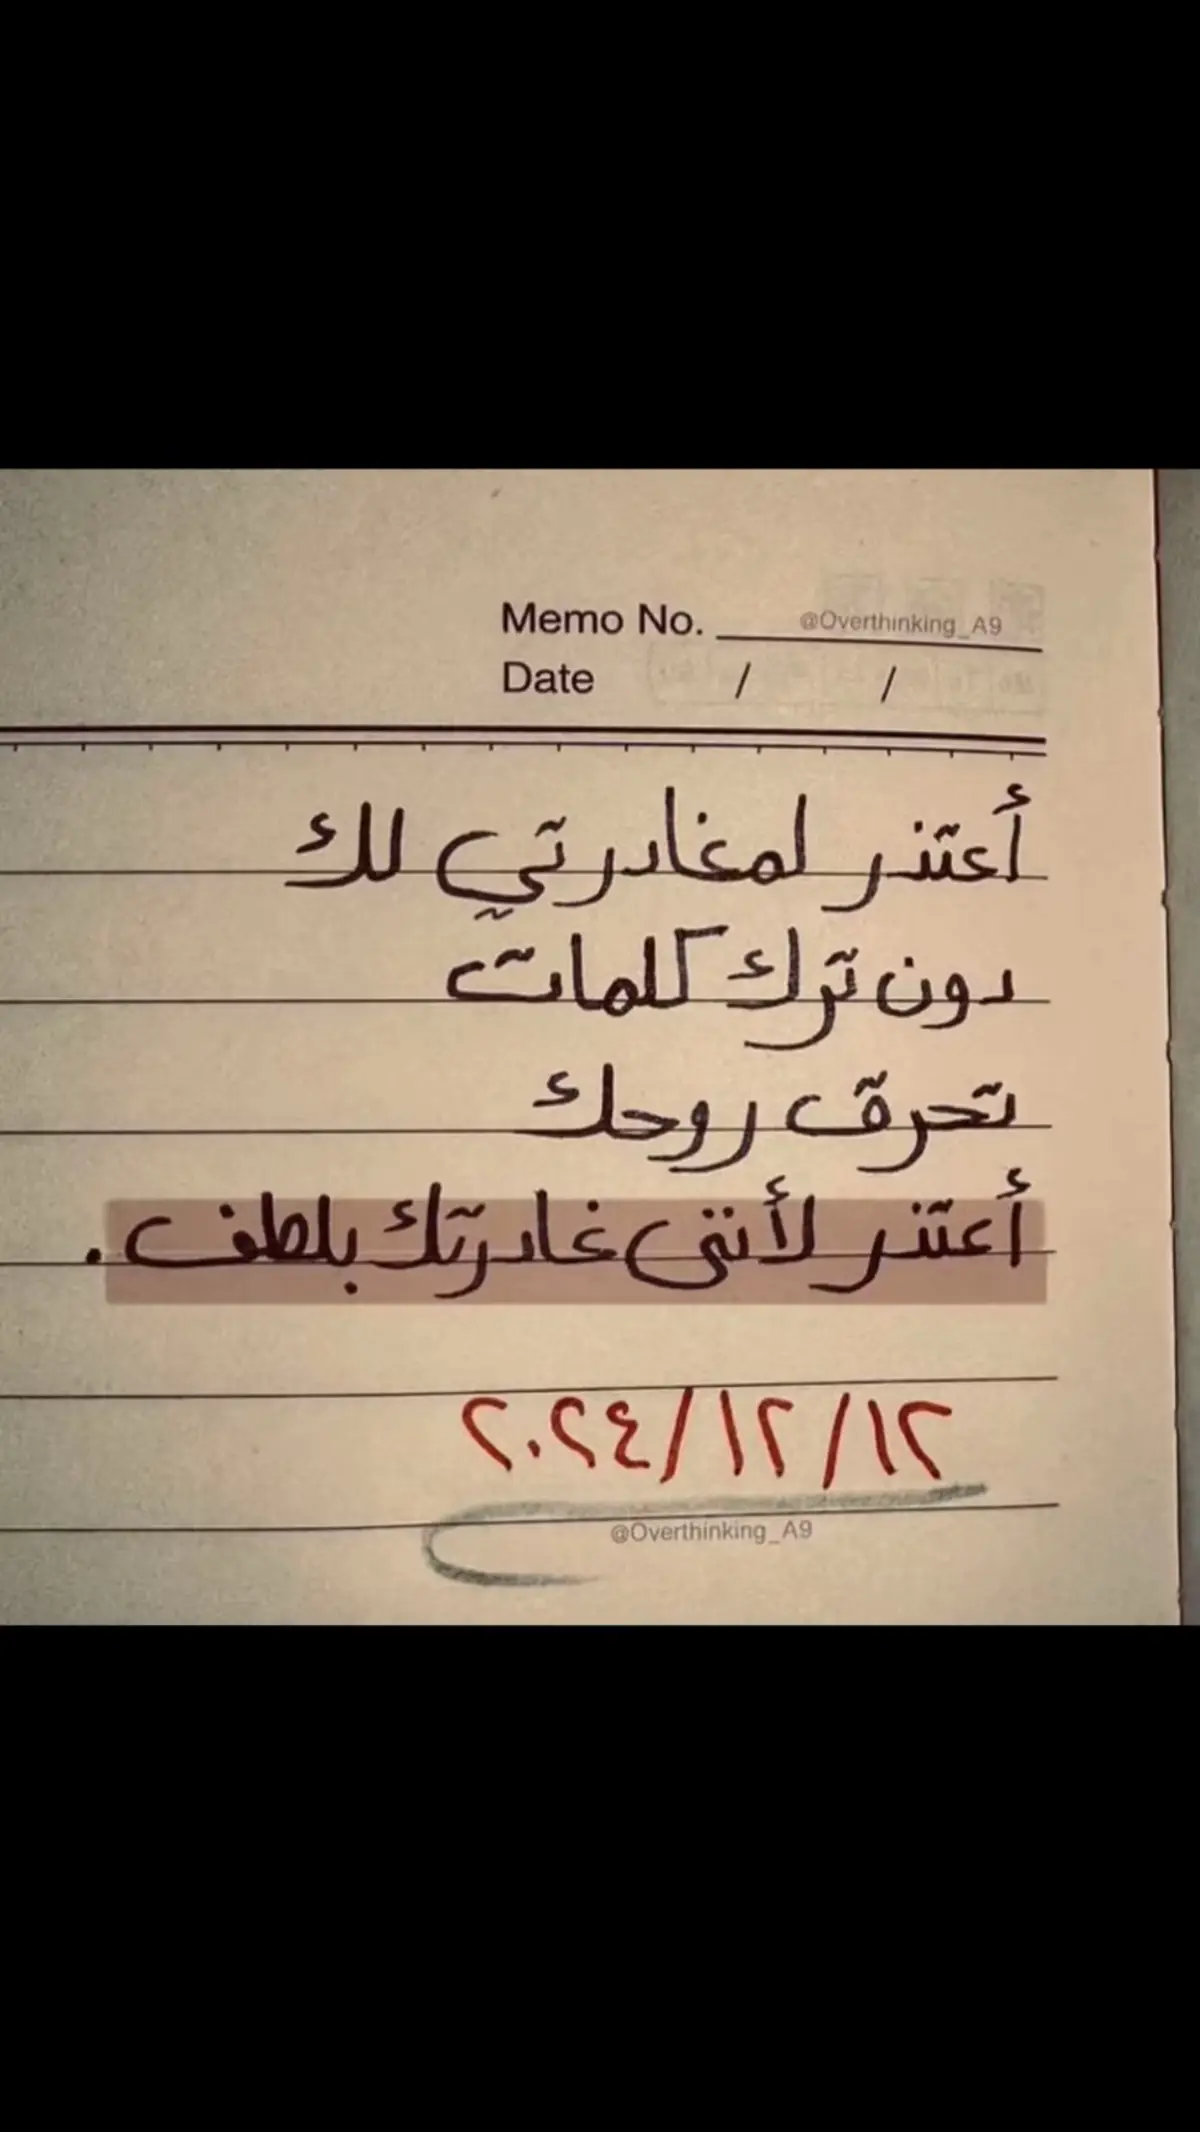 Memo No. @Overthinking_A9
Date / /
أعتذر لمغادرتي لك
دون ترك كلمات
تحرق روحك
أعتذر لأنني غادرتك بلطف .
٢٠٢٤/١٢/١٢
@Overthinking_A9